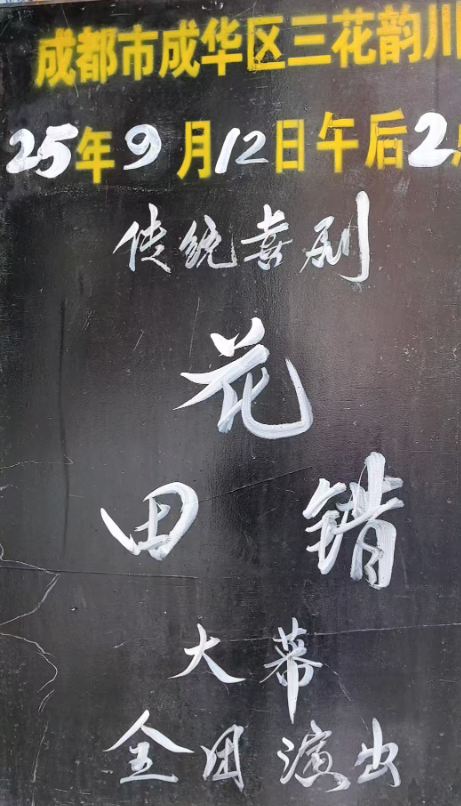 成都市成华区三花韵川
25年9月12日午后2点
传统喜剧
花
田错
大幕
全团演出